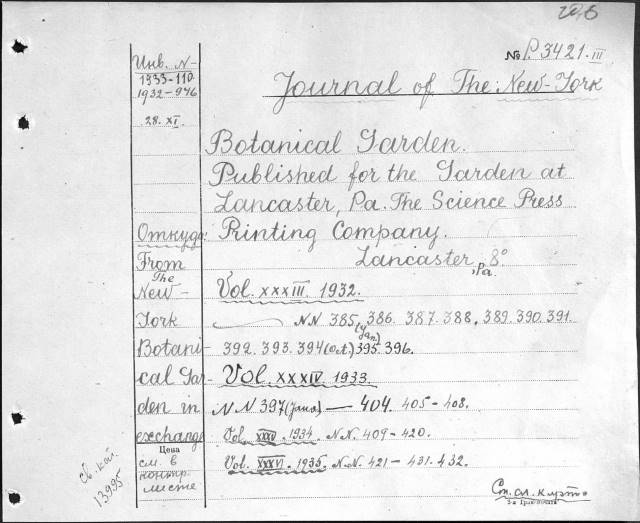 № P. 3421-III
Инв. N-
1933-110.
1932-946
28. XI.
Journal of The New-York
Botanical Garden.
Published for the Garden at
Lancaster, Pa. The Science Press
Printing Company.
Lancaster, Pa. 8°
Vol. XXXIII. 1932.
NN 385 (Jan.) 386. 387. 388. 389. 390. 391.
392. 393. 394 (Oct.) 395. 396.
Vol. XXXIV. 1933.
NN 397 (Jan.) — 404. 405-408.
Vol. XXXV. 1934. N.N. 409-420.
Vol. XXXVI. 1935. N.N. 421 — 431. 432.
Откуда:
From
The
New-
York
Botani-
cal Gar-
den in
exchange
Цена
см. в
контр.
листе
13995